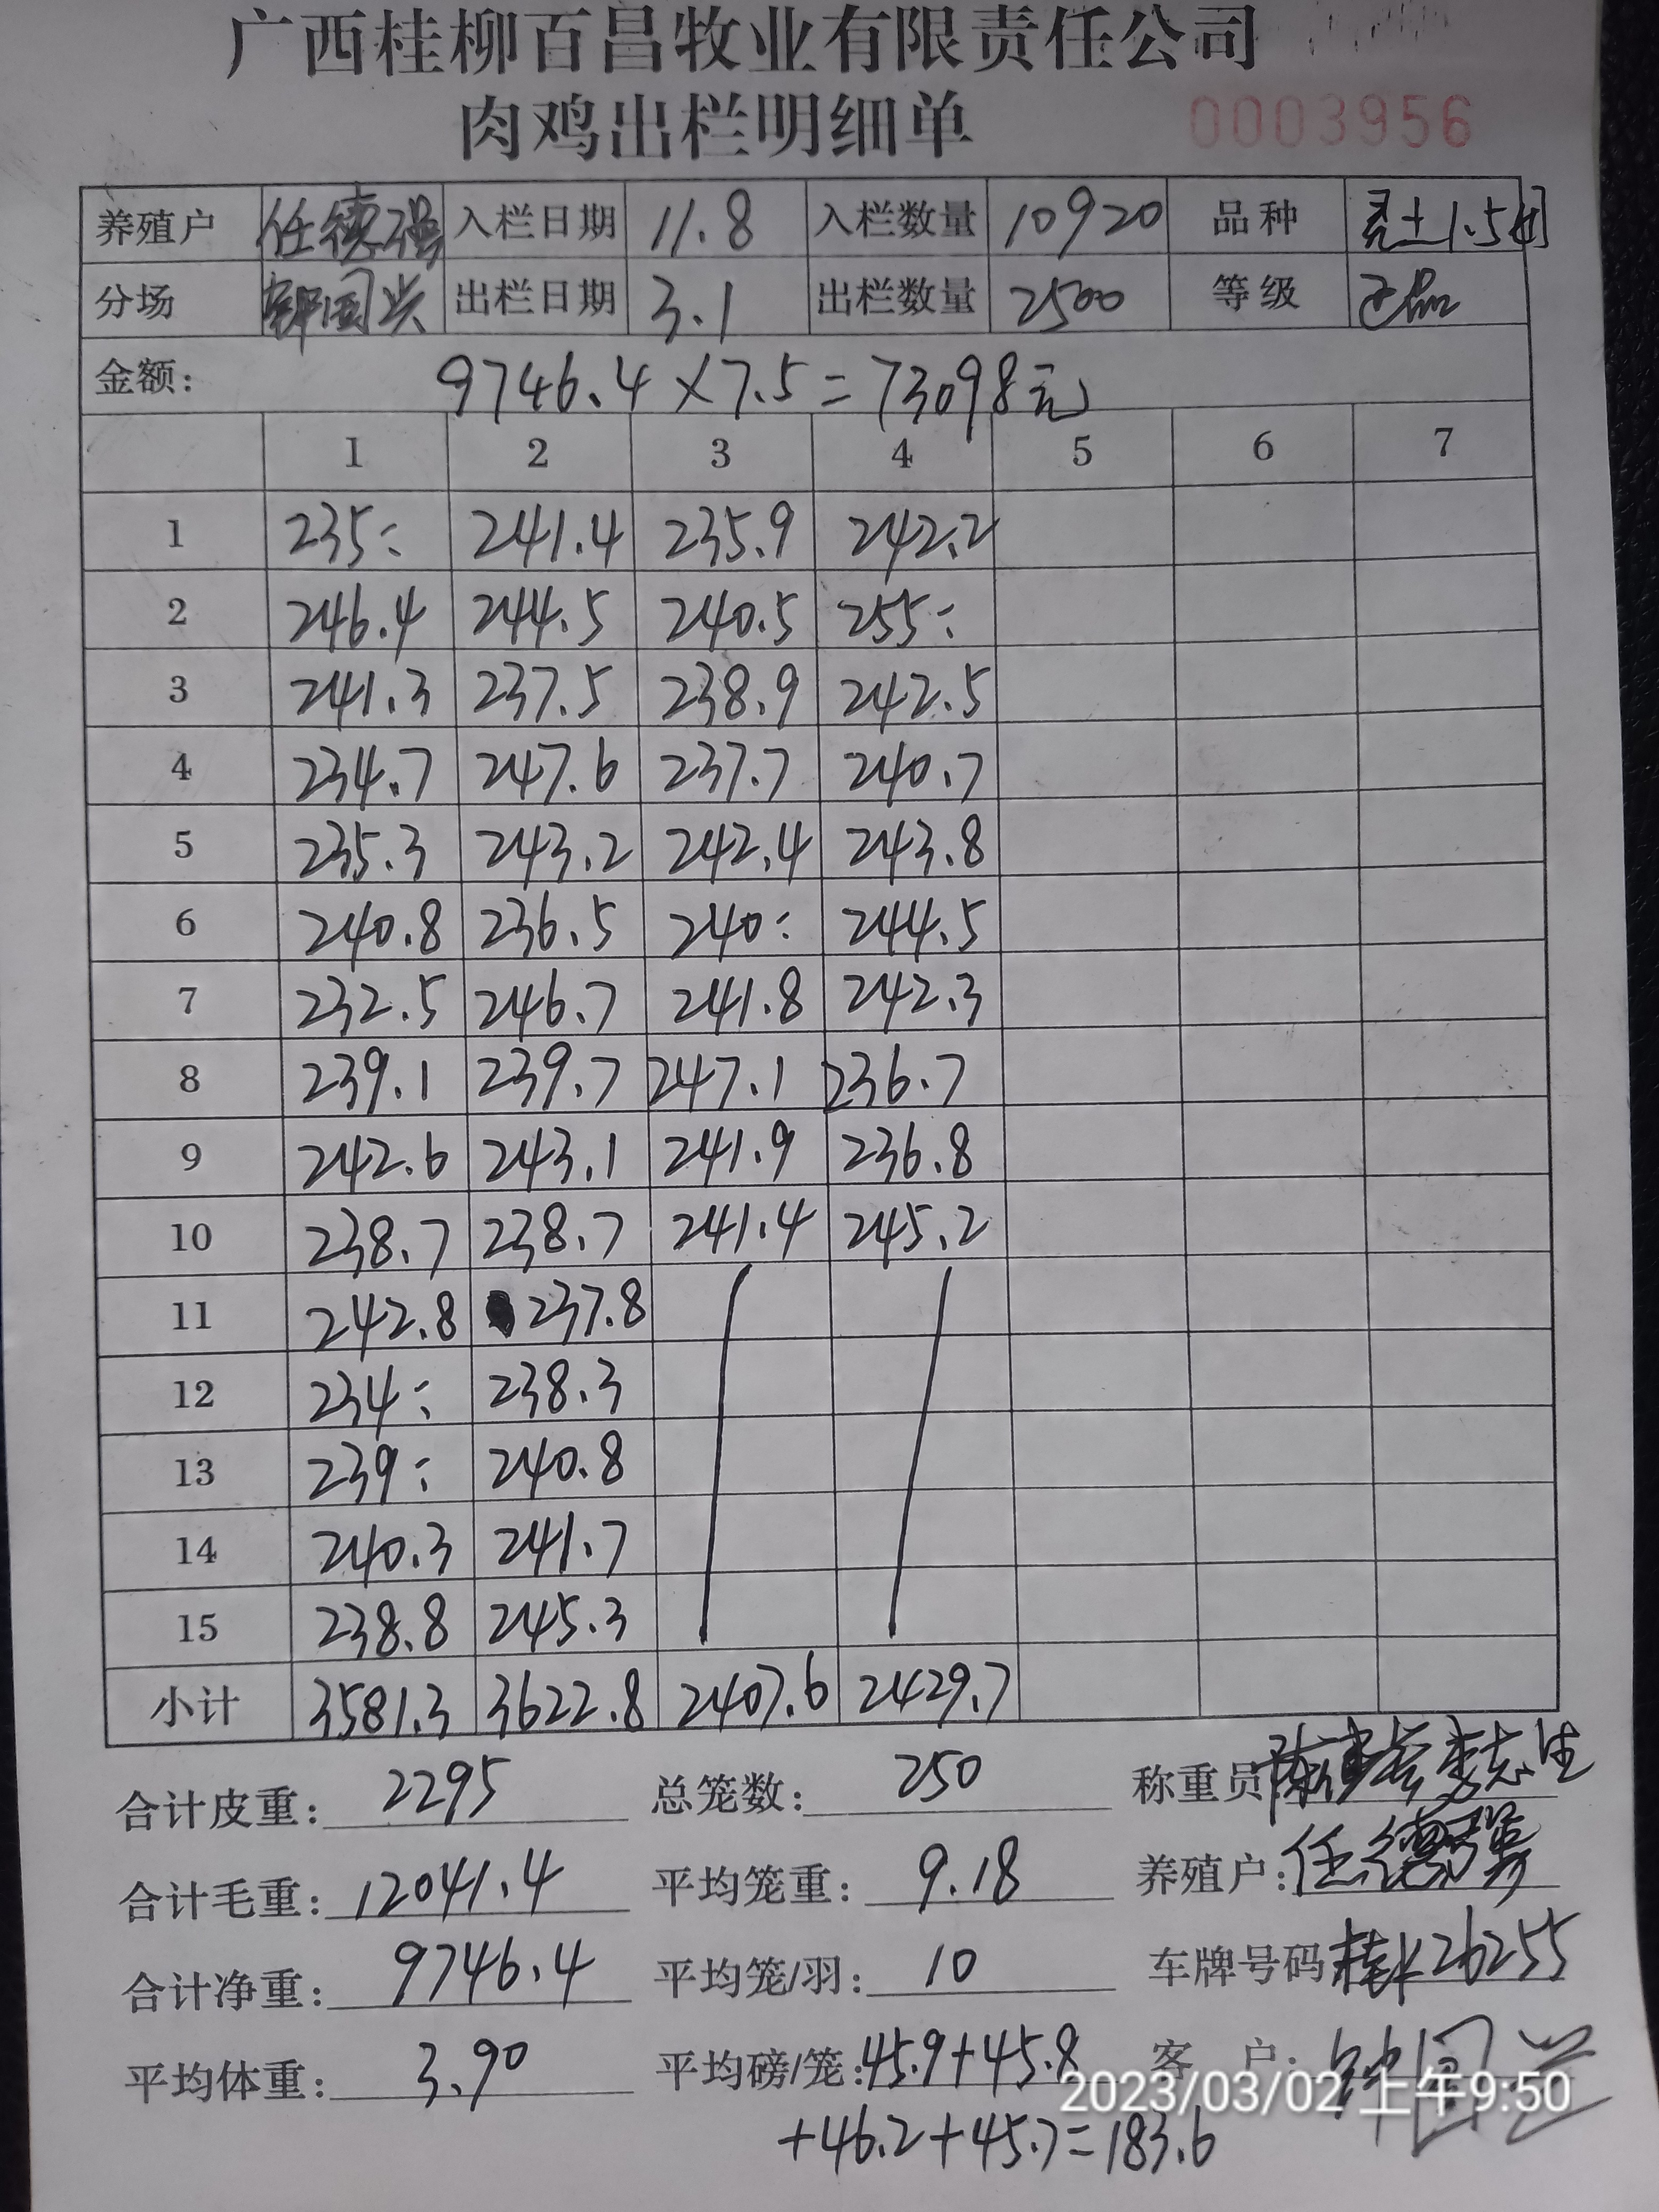 广西桂柳百昌牧业有限责任公司
肉鸡出栏明细单 0003956
养殖户 任德强 入栏日期 11.8 入栏数量 10920 品种 土1.5
分场 国兴 出栏日期 3.1 出栏数量 2500 等级 正品
金额: 9746.4×7.5=73098元
1 2 3 4 5 6 7
1 235: 241.4 235.9 242.2
2 246.4 244.5 240.5 255:
3 241.3 237.5 238.9 242.5
4 234.7 247.6 237.7 240.7
5 235.3 243.2 242.4 243.8
6 240.8 236.5 240: 244.5
7 232.5 246.7 241.8 242.3
8 239.1 239.7 247.1 236.7
9 242.6 243.1 241.9 236.8
10 238.7 238.7 241.4 245.2
11 242.8 237.8
12 234: 238.3
13 239: 240.8
14 240.3 241.7
15 238.8 245.3
小计 3581.3 3622.8 2407.6 2429.7
合计皮重: 2295 总笼数: 250 称重员 李志生
合计毛重: 12041.4 平均笼重: 9.18 养殖户: 任德强
合计净重: 9746.4 平均笼/羽: 10 车牌号码 桂K26255
平均体重: 3.90 平均磅/笼: 45.9+45.8 客 户:
2023/03/02 上午9:50
+46.2+45.7=183.6